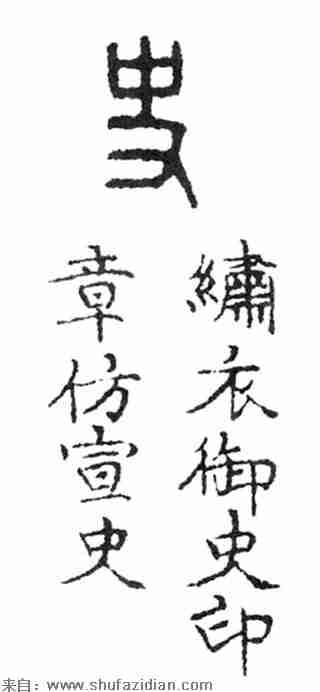 史
繡衣御史印
章仿宣史
来自：www.shufazidian.com